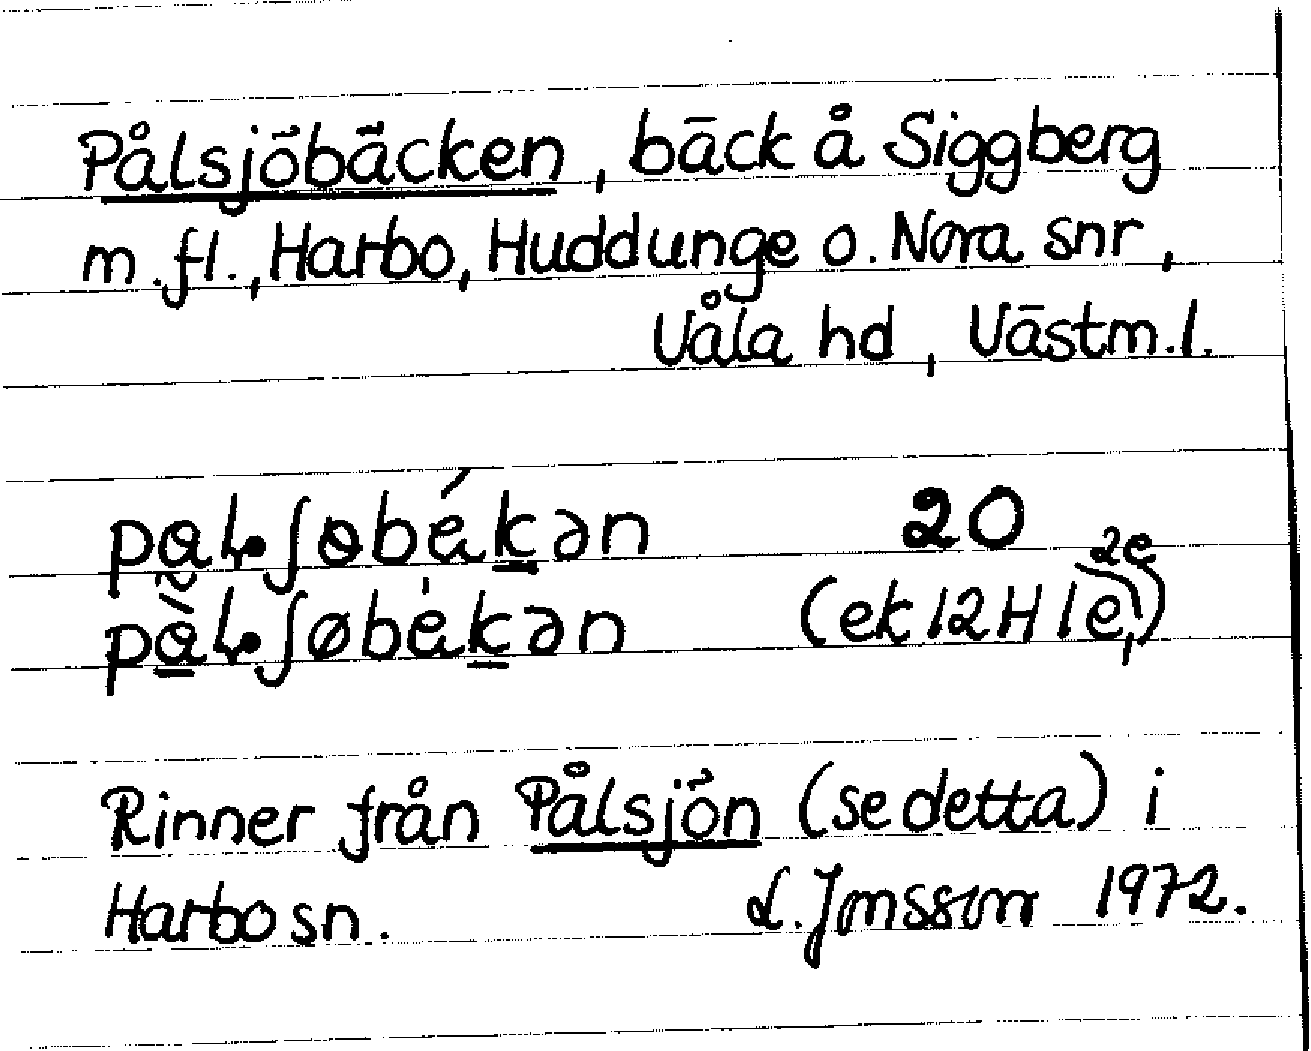 Pålsjöbäcken, bäck å Siggberg
m.fl., Harbo, Huddunge o. Nora snr,
Våla hd, Västm.l.
20
(ek 12H 1e,) 2e
Rinner från Pålsjön (se detta) i
Harbo sn. L. Jonsson 1972.